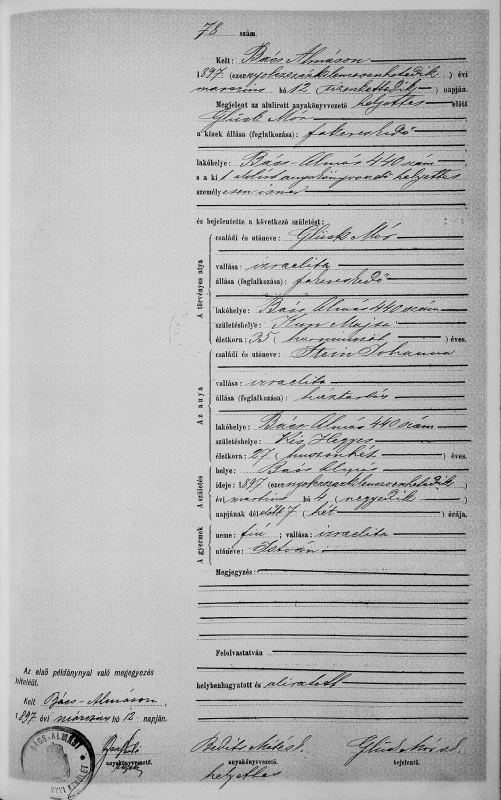 78 szám.
Kelt: Bács Almáson
1897 (ezernyolczszázkilenczvenhetedik) évi
marczius hó 12 (tizenkettedik) napján.
Megjelent az alulirott anyakönyvvezető helyettes előtt
Glück Mór
a kinek állása (foglalkozása): fakereskedő
lakóhelye: Bács-Almás 440 szám
s a kit alulirt anyakönyvvezető helyettes
személyesen ismer
és bejelentette a következő születést:
A törvényes atya
családi és utóneve: Glück Mór
vallása: izraelita
állása (foglalkozása): fakereskedő
lakóhelye: Bács Almás 440 szám
születéshelye: Kun Majsa
életkora: 35 (harminczöt) éves.
Az anya
családi és utóneve: Stein Johanna
vallása: izraelita
állása (foglalkozása): háztartás
lakóhelye: Bács Almás 440 szám
születéshelye: Kis Hegyes
életkora: 27 (huszonhét) éves.
A születés
helye: Bács Almás
ideje: 1897 (ezernyolczszázkilenczvenhetedik)
évi martius hó 4 (negyedik)
napjának délelőtt 7 (hét) órája.
A gyermek
neme: fiú; vallása: izraelita
utóneve: István
Megjegyzés:
Felolvastatván
helybenhagyatott és aláiratott
Az első példánynyal való megegyezés
hiteléül.
Kelt Bács-Almáson,
1897 évi márczius hó 12. napján.
anyakönyvvezető.
anyakönyvvezető
helyettes
Glück Mór sk.
bejelentő.
BÁCS-ALMÁSI